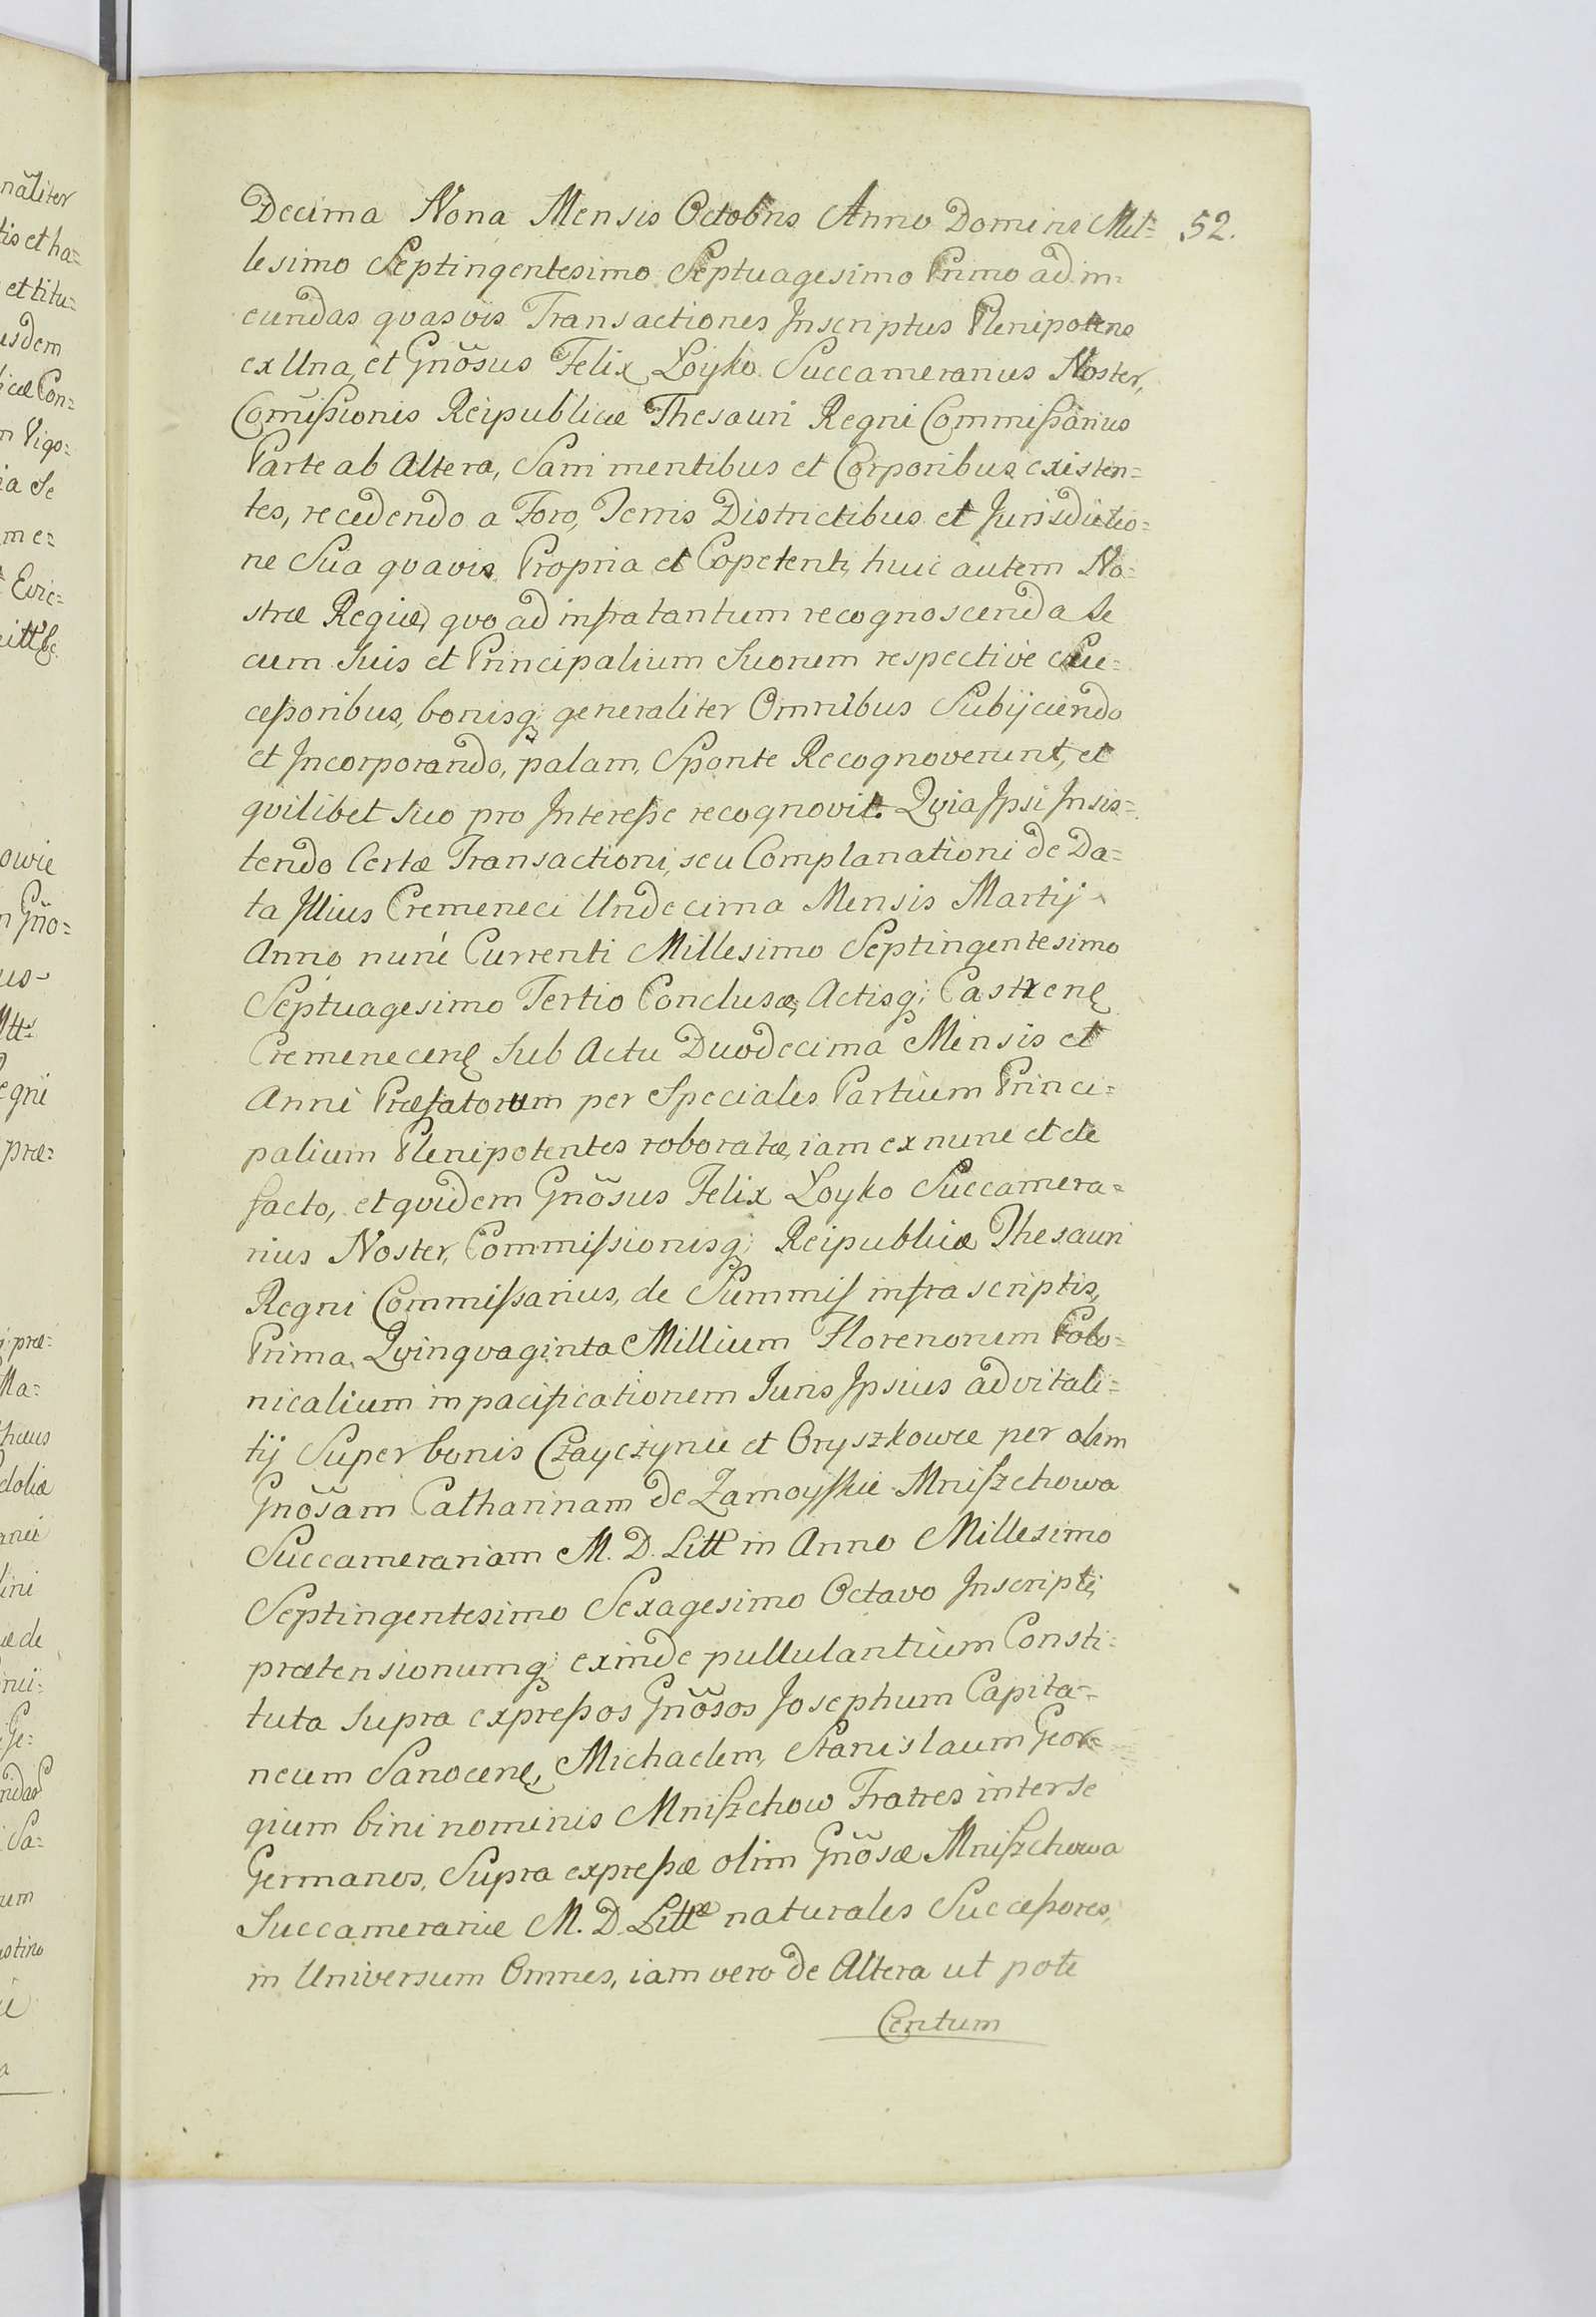 Decima Nona Mensis Octobris Anno Domini Mil= 52.
lesimo Septingentesimo Septuagesimo Primo ad in
eundas qvasvis Transactiones Inscriptus Plenipotens
ex Una, et Gnõsus Felix Łoyko Succamerarius Noster,
Com̃ißionis Reipublicæ Thesauri Regni Commißarius
Parte ab Altera, Sani mentibus et Corporibus existen=
tes, recedendo a Foro, Terris Districtibus et Jurisdictio=
ne Sua qvavis Propria et Copetenti, huic autem No=
stræ Regiæ, qvo ad infra tantum recognoscenda Se
cum Suis et Principalium Suorum respective Suc=
ceßoribus, bonisq; generaliter Omnibus Subijciendo
et Incorporando, palam, Sponte Recognoverunt, et
qvilibet Suo pro Intereße recognovit. Qvia Ipsi Insis=
tendo Certæ Transactioni, seu Complanationi de Da=
ta Illius Cremeneci Undecima Mensis Martij
Anno nunc Currenti Millesimo Septingentesimo
Septuagesimo Tertio Conclusæ, Actisq; Castrenę
Cremenecenę Sub Actu Duodecima Mensis et
Anni Præfatorum per Speciales Partium Princi=
palium Plenipotentes roboratæ, iam ex nunc et de
facto, et qvidem Gnõsus Felix Łoyko Succamera=
rius Noster, Commißionisq; Reipublicæ Thesauri
Regni Commißarius, de Summis infra scriptis,
Prima Qvinqvaginta Millium Florenorum Polo=
nicalium in pacificationem Juris Ipsius advitali=
tij Super bonis Czayczynce et Oryszkowce per olim
Gnõsam Catharinam de Zamoyskie Mniszchowa
Succamerariam M. D. Litt in Anno Millesimo
Septingentesimo Sexagesimo Octavo Inscripti,
prætensionumq; exinde pullulantium Consti=
tuta Supra expreßos Gnõsos Josephum Capita=
neum Sanocenę, Michaelem, Stanislaum Geor=
gium bini nominis Mniszchow Fratres inter Se
Germanos, Supra expreßæ olim Gnõsæ Mniszchowa
Succamerariæ M. D. Littæ naturales Succeßores,
in Universum Omnes, iam vero de Altera ut pote
Centum